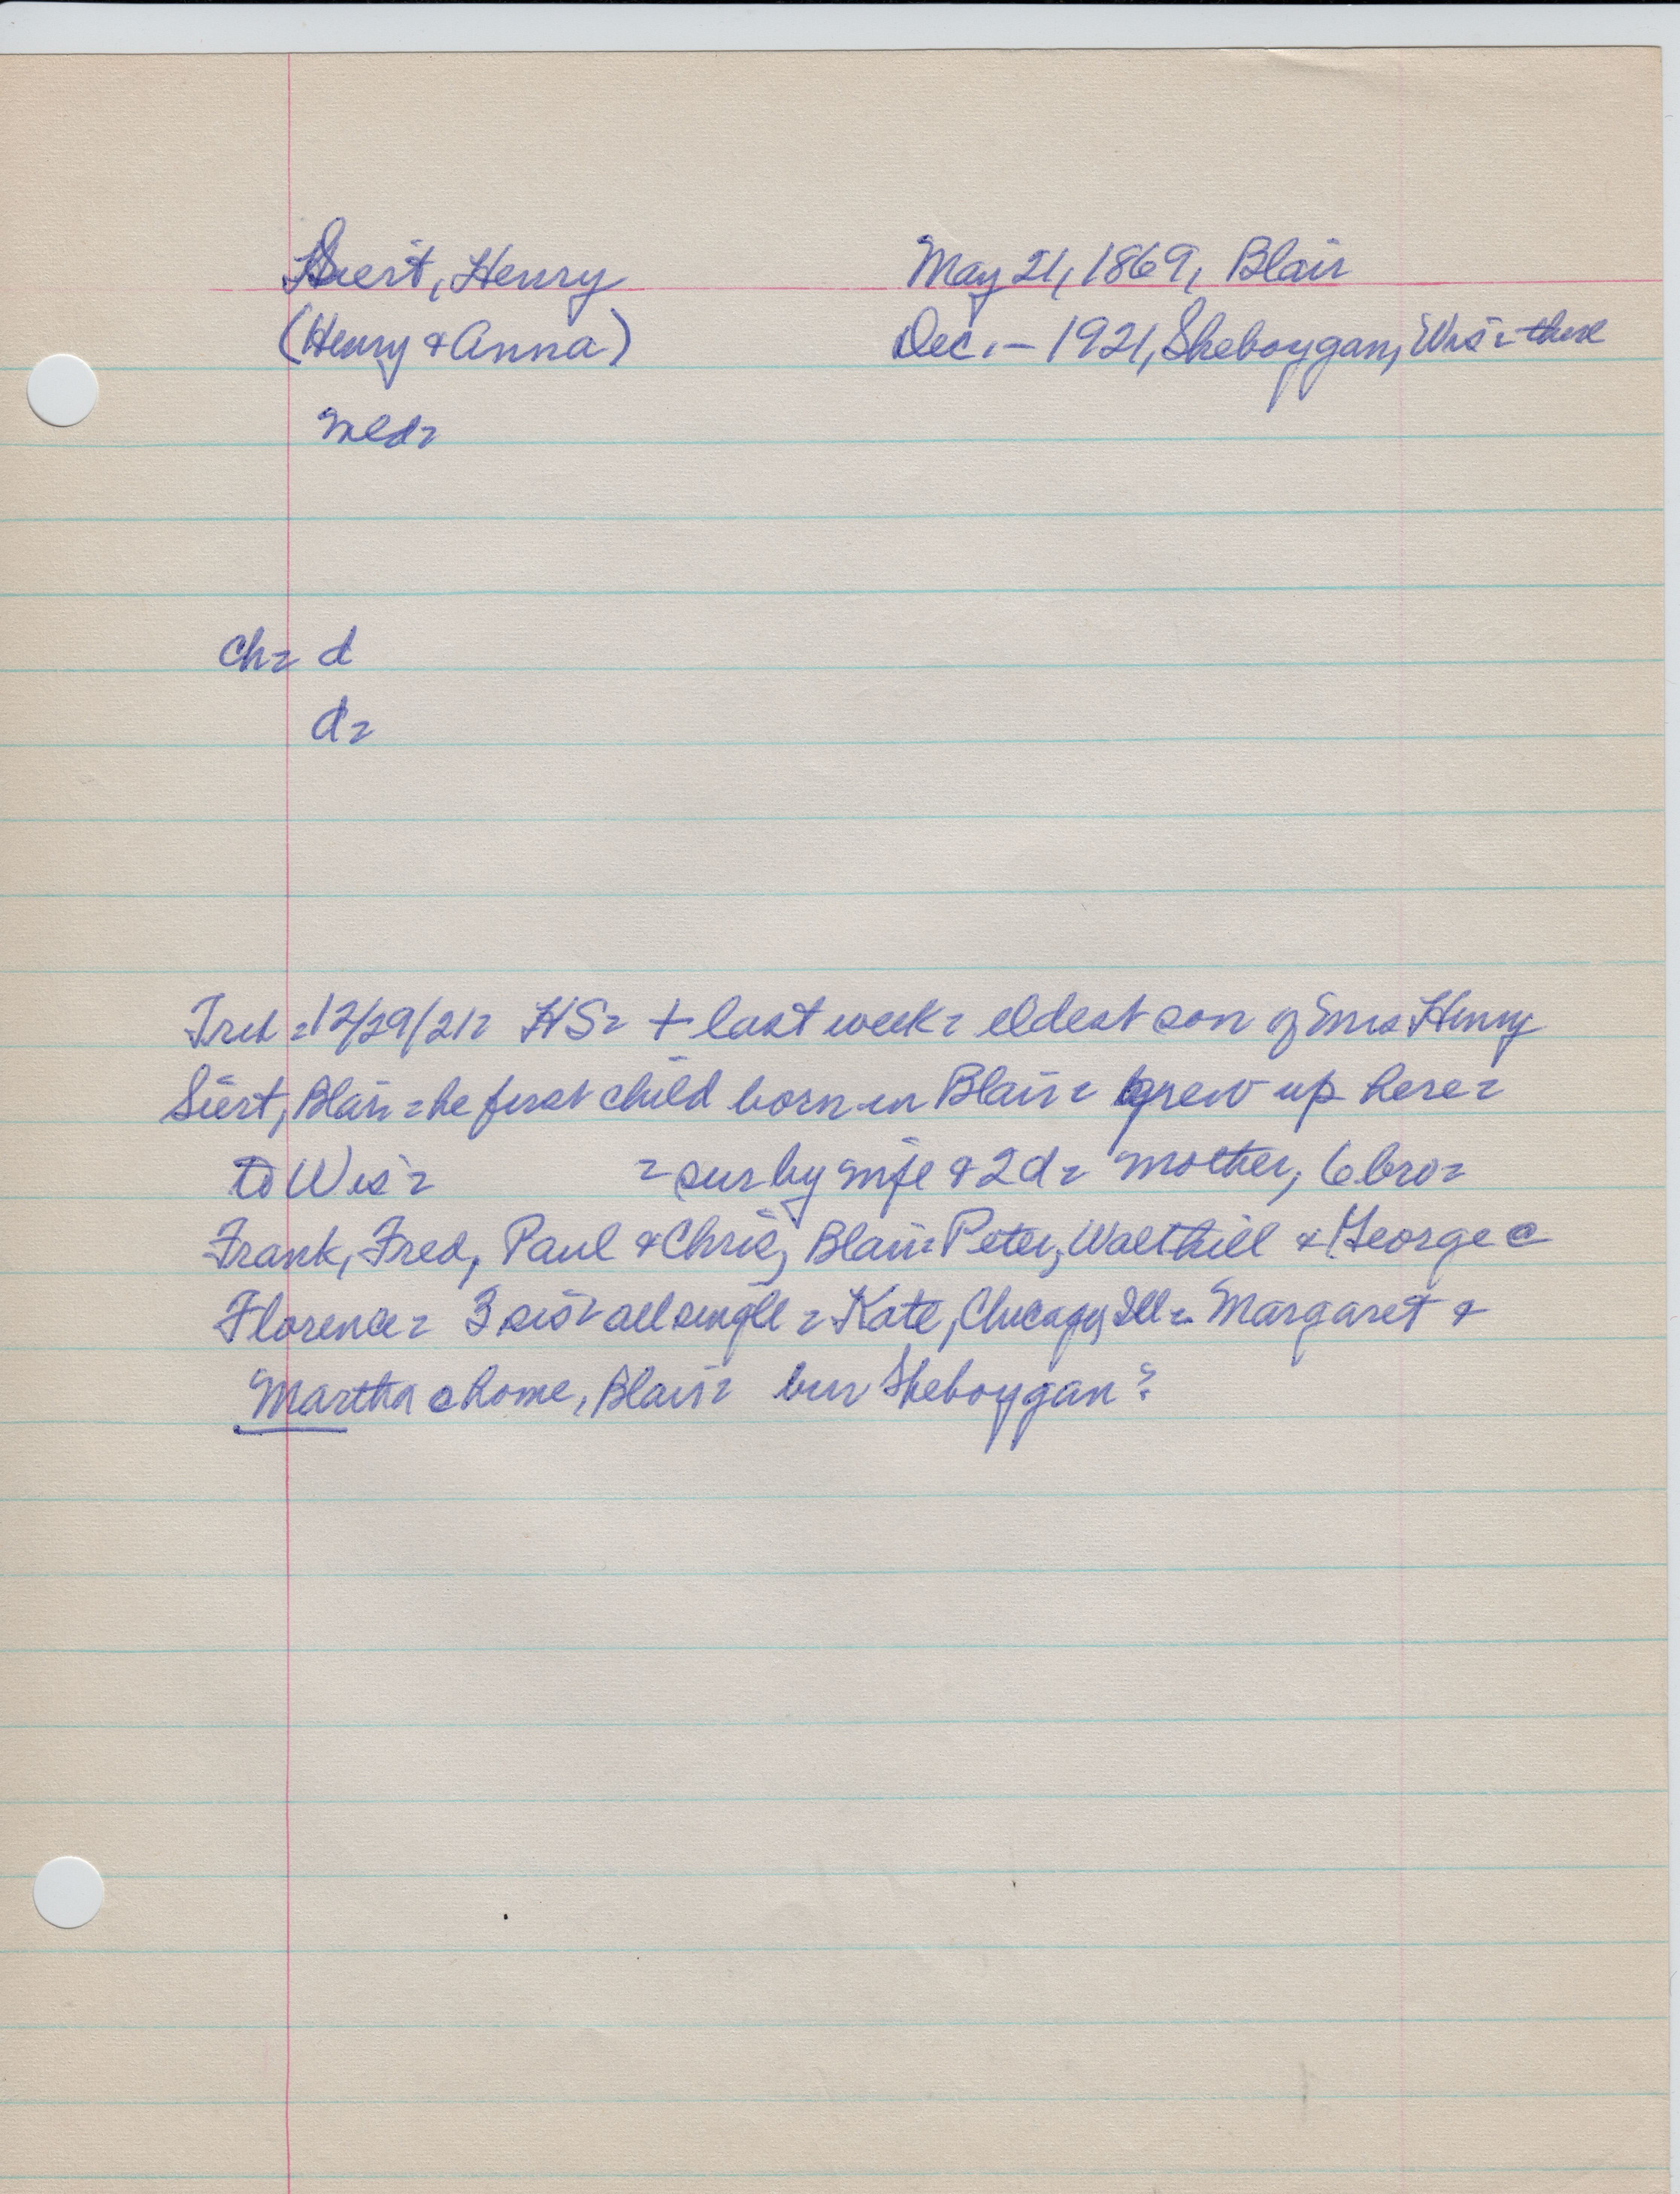 Siert, Henry
May 21, 1869, Blair
(Henry & Anna)
Dec. - 1921, Sheboygan, Wis = there
md =
Ch = d
d =
Trib = 12/29/21 = HS = + last week = eldest son of Mrs Henry
Siert, Blair = he first child born in Blair = grew up here =
to Wis = = sur by wife & 2 d = mother, 6 bro =
Frank, Fred, Paul & Chris, Blair = Peter, Walthill & George @
Florence = 3 sis = all single = Kate, Chicago, Ill = Margaret &
Martha @ home, Blair = bur Sheboygan?